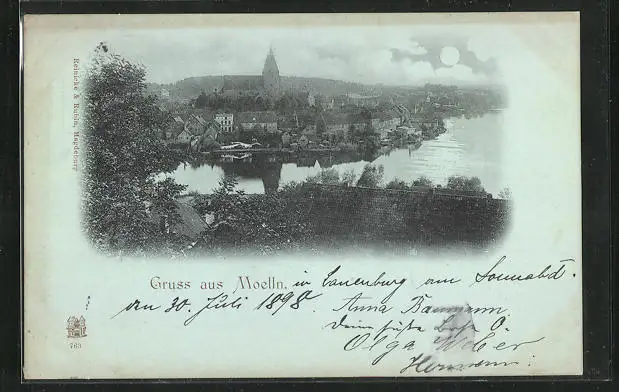 Reinicke & Rubin, Magdeburg
Gruss aus Moelln. in Lauenburg am Sonnabd.
den 30. Juli 1898. Anna Baumann
Olga Weber
Hermann
763